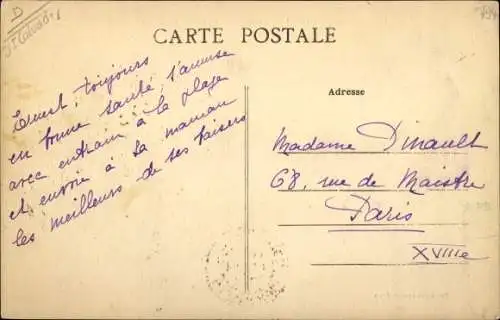 D
CARTE POSTALE
Ernest, toujours
en bonne santé, s'amuse
avec entrain à la plage
et envoie à sa maman
les meilleurs de ses baisers
Adresse
Madame Dinault
68, rue de Maistre
Paris
XVIIIe